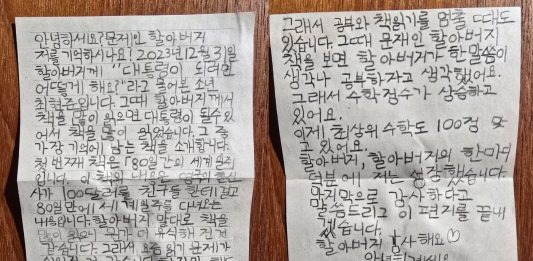 안녕하세요? 문재인 할아버지
저를 기억하시나요? 2023년 12월 31일
할아버지께 "대통령이 되려면
어떻게 해요?"라고 물어본 소년
최현준입니다. 그때 할아버지께서
책을 많이 읽으면 대통령이 될수있
어서 책을 많이 읽었습니다. 그 중
가장 기억에 남는 책을 소개합니다.
첫 번째 책은 「80일간의 세계 일주」
입니다. 이 책의 내용은 영국의 신사
사가 100달러를 친구들한테 걸고
80일만에 세계일주를 다녀오는
내용입니다. 할아버지 말대로 책을
많이 읽으니 뭔가 더 유식해 진것
같습니다. 그래서 요즘 읽기 문제가
그래서 공부와 책읽기를 멈출 때도
있습니다. 그때 문재인 할아버지
책을 보면 할아버지가 한 말씀이
생각나 공부하자고 생각했어요.
그래서 수학점수가 상승하고
있어요.
이제 최상위 수학도 100점 맞
고 있어요.
할아버지, 할아버지의 한마디
덕분에 저는 성장했습니다.
마지막으로 감사하다고
말씀드리고 이 편지를 끝내
겠습니다.
할아버지 감사해요♡
안녕히계세요